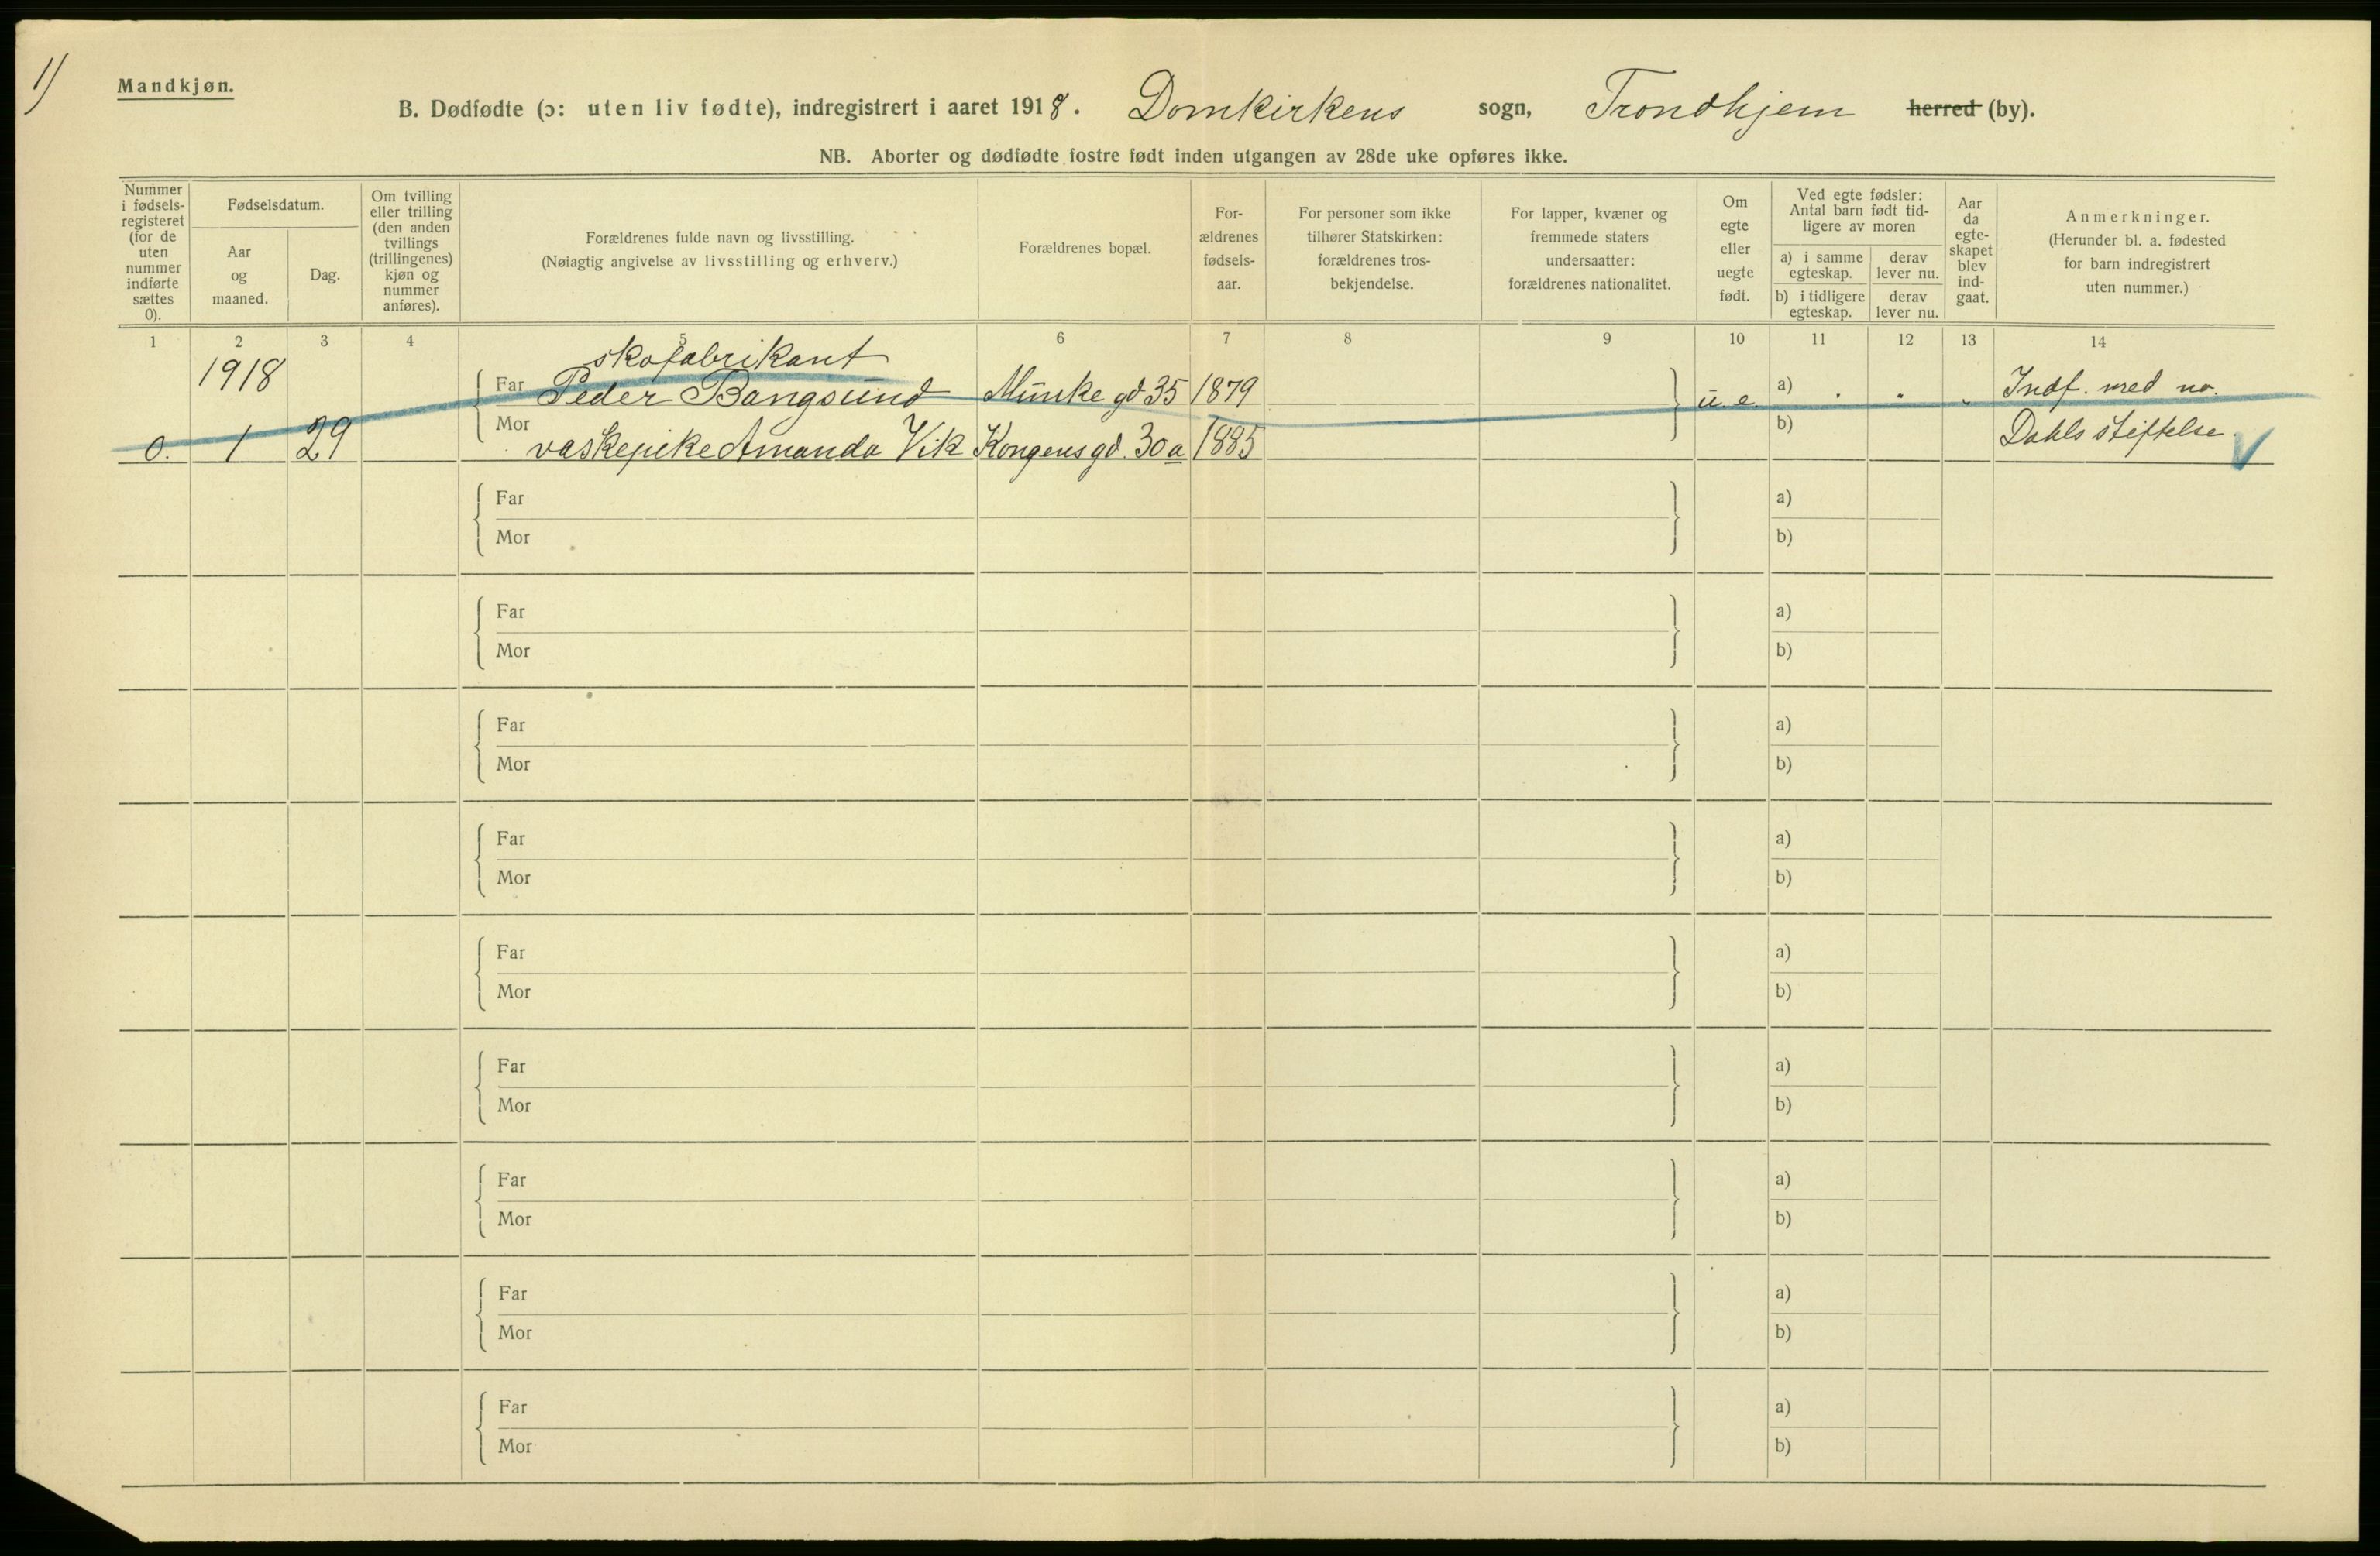 1)
Mandkjøn.
B. Dødfødte (ɔ: uten liv fødte), indregistrert i aaret 1918. Domkirkens sogn, Trondhjem herred (by).
NB. Aborter og dødfødte fostre født inden utgangen av 28de uke opføres ikke.
Nummer
i fødsels-
registeret
(for de
uten
nummer
indførte
sættes
0).
Fødselsdatum.
Aar
og
maaned.
Dag.
Om tvilling
eller trilling
(den anden
tvillings
(trillingenes)
kjøn og
nummer
anføres).
Forældrenes fulde navn og livsstilling.
(Nøiagtig angivelse av livsstilling og erhverv.)
Forældrenes bopæl.
For-
ældrenes
fødsels-
aar.
For personer som ikke
tilhører Statskirken:
forældrenes tros-
bekjendelse.
For lapper, kvæner og
fremmede staters
undersaatter:
forældrenes nationalitet.
Om
egte
eller
uegte
født.
Ved egte fødsler:
Antal barn født tid-
ligere av moren
a) i samme
egteskap.
derav
lever nu.
b) i tidligere
egteskap.
derav
lever nu.
Aar
da
egte-
skapet
blev
ind-
gaat.
Anmerkninger.
(Herunder bl. a. fødested
for barn indregistrert
uten nummer.)
1 2 3 4 5 6 7 8 9 10 11 12 13 14
1918 skofabrikant
Far Peder Bangsund Munke gd 35 1879 u.e. a) " " " Indf. med no.
0. 1 29 Mor vaskepike Amanda Vik Kongens gd. 30a 1885 b) Dahls stiftelse.
Far a)
Mor b)
Far a)
Mor b)
Far a)
Mor b)
Far a)
Mor b)
Far a)
Mor b)
Far a)
Mor b)
Far a)
Mor b)
Far a)
Mor b)
Far a)
Mor b)